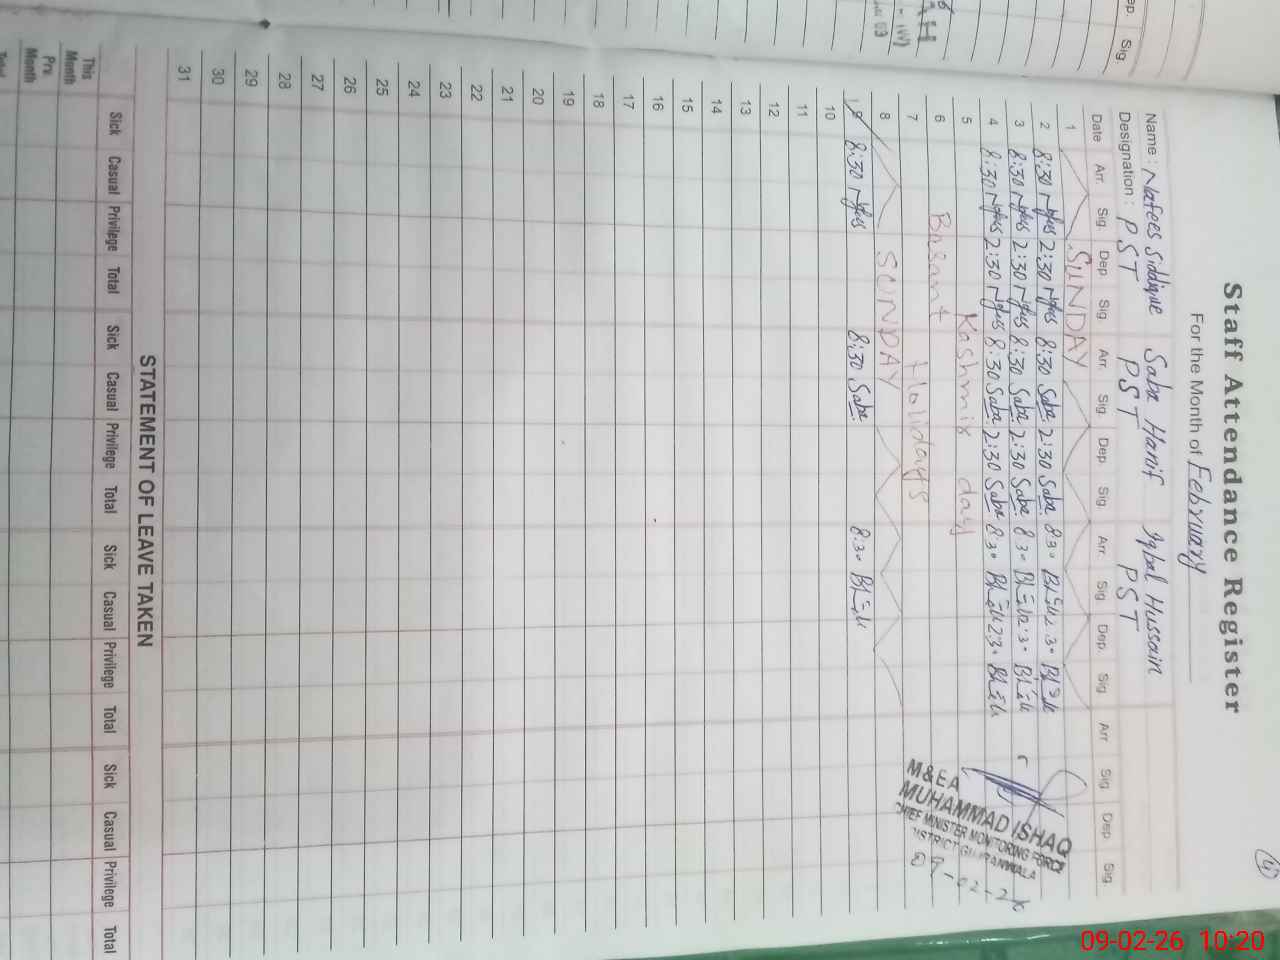 Staff Attendance Register
For the Month of February
Name : Nafees Siddique Saba Hanif Iqbal Hussain
Designation : PST PST PST
Date Arr. Sig. Dep Sig. Arr. Sig. Dep. Sig. Arr. Sig Dep. Sig Arr Sig Dep Sig
1 SUNDAY
2 8:30 Nafees 2:30 Nafees 8:30 Saba 2:30 Saba 8:30 2:30
3 8:30 Nafees 2:30 Nafees 8:30 Saba 2:30 Saba 8:30 2:30
4 8:30 Nafees 2:30 Nafees 8:30 Saba 2:30 Saba 8:30 2:30
5 Kashmir day
6 Basant
7 Holidays
8 SUNDAY
9 8:30 Nafees 8:30 Saba 8:30
10
11
12
13
14
15
16
17
18
19
20
21
22
23
24
25
26
27
28
29
30
31
M&EA
MUHAMMAD ISHAQ
CHIEF MINISTER MONITORING FORCE
DISTRICT GUJRANWALA
09-02-26
STATEMENT OF LEAVE TAKEN
Sick Casual Privilege Total Sick Casual Privilege Total Sick Casual Privilege Total Sick Casual Privilege Total
This Month
Prv. Month
Total
ep. Sig.
09-02-26 10:20